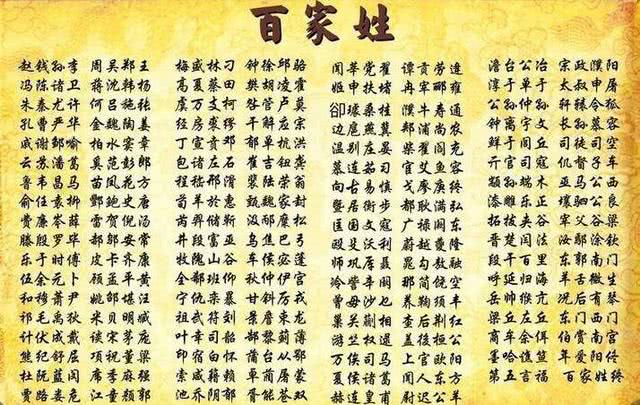 百家姓
赵钱孙李 周吴郑王 梅盛林刁 钟徐邱骆 闻莘党翟 谭贡劳逄 澹台公冶 宗政濮阳
冯陈褚卫 蒋沈韩杨 高夏蔡田 樊胡凌霍 姬申扶堵 冉宰郦雍 淳于单于 太叔申屠
朱秦尤许 何吕施张 虞万支柯 昝管卢莫 郤璩桑桂 濮牛寿通 公孙仲孙 轩辕令狐
孔曹严华 金魏陶姜 经房裘缪 干解应宗 边扈燕冀 郏浦尚农 钟离宇文 长孙慕容
戚谢邹喻 柏水窦章 丁宣贲邓 郁单杭洪 温别庄晏 柴瞿阎充 鲜于闾丘 司徒司空
云苏潘葛 奚范彭郎 包诸左石 崔吉钮龚 慕连茹习 宦艾鱼容 亓官司寇 仉督子车
鲁韦昌马 苗凤花方 程嵇邢滑 裴陆荣翁 向古易慎 戈廖庾终 颛孙端木 巫马公西
俞任袁柳 酆鲍史唐 荀羊於惠 甄曲家封 暨居衡步 都耿满弘 漆雕乐正 壤驷公良
费廉岑薛 雷贺倪汤 芮羿储靳 汲邴糜松 匡国文寇 广禄阙东 拓跋夹谷 宰父谷梁
滕殷罗毕 郝邬安常 井段富巫 乌焦巴弓 欧殳沃利 蔚越夔隆 晋楚闫法 汝鄢涂钦
乐于时傅 皮卞齐康 牧隗山谷 车侯宓蓬 师巩厍聂 晁勾敖融 段干百里 东郭南门
伍余元卜 顾孟平黄 全郗班仰 秋仲伊宫 冷訾辛阚 那简饶空 呼延归海 羊舌微生
和穆萧尹 姚邵湛汪 宁仇栾暴 甘钭厉戎 曾毋沙乜 养鞠须丰 岳帅缑亢 况后有琴
祁毛禹狄 米贝明臧 祖武符刘 景詹束龙 巢关蒯相 查后荆红 梁丘左丘 东门西门
计伏成戴 谈宋茅庞 叶幸司韶 郜黎蓟薄 游竺权逯 盖益桓公 商牟佘佴 伯赏南宫
熊纪舒屈 项祝董梁 印宿白怀 蒲邰从鄂 万俟司马 上官欧阳 墨哈谯笪 年爱阳佟
杜阮蓝闵 席季麻强 索咸籍赖 卓蔺屠蒙 夏侯诸葛 闻人东方 第五言福 百家姓终
贾路娄危 江童颜郭 池乔阴郁 胥能苍双 赫连皇甫 尉迟公羊